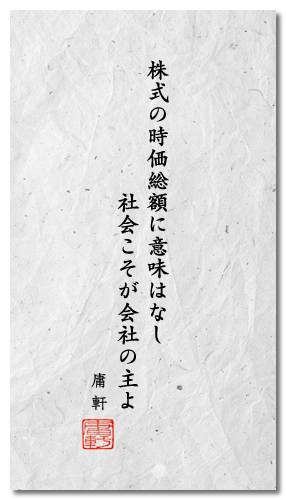 株式の時価総額に意味はなし
社会こそが会社の主よ
庸軒